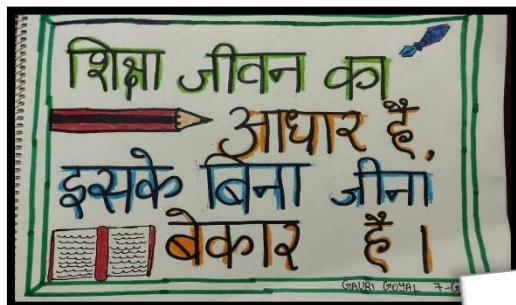 शिक्षा जीवन का
आधार है,
इसके बिना जीना
बेकार है।
GAURI GOYAL 7-G